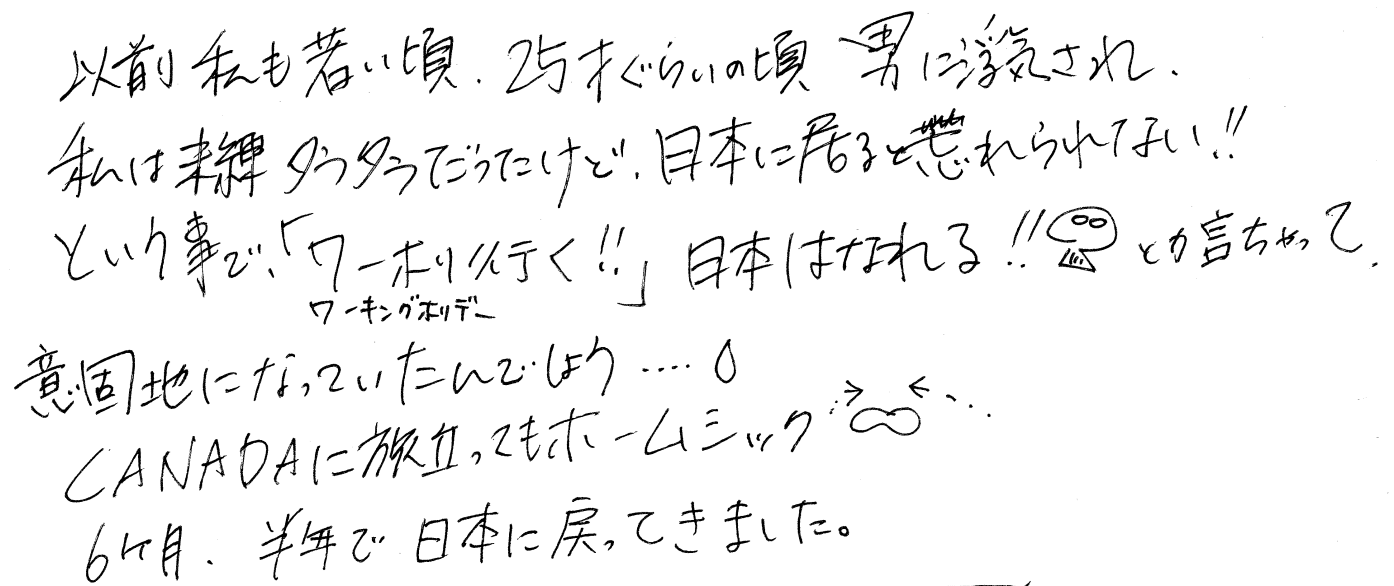 以前私も若い頃、25才ぐらいの頃 男に浮気され、
私は未練タラタラだったけど、日本に居ると忘れられてない!!
という事で、「ワーホリ行く!!」日本はなれる!! とか言ちゃって、
ワーキングホリデー
意固地になっていたんでしょう....
CANADAに旅立ってもホームシック...
6ヶ月、半年で日本に戻ってきました。